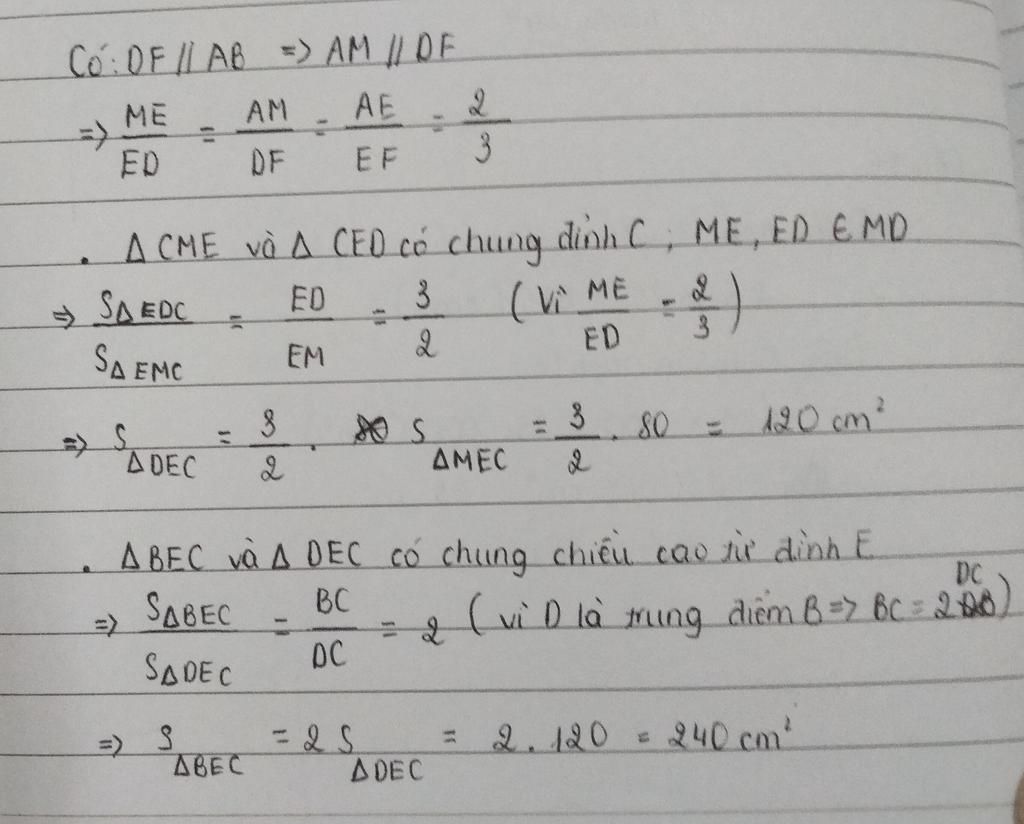 Có: DF // AB => AM // DF
=> ME/ED = AM/DF = AE/EF = 2/3
. Δ CME và Δ CED có chung đỉnh C ; ME, ED ∈ MD
=> SΔEDC/SΔEMC = ED/EM = 3/2 ( Vì ME/ED = 2/3 )
=> SΔDEC = 3/2 . SΔMEC = 3/2 . 80 = 120 cm²
. ΔBEC và Δ DEC có chung chiều cao từ đỉnh E
=> SΔBEC/SΔDEC = BC/DC = 2 ( vì D là trung điểm B => BC = 2 DC )
=> SΔBEC = 2 SΔDEC = 2 . 120 = 240 cm²